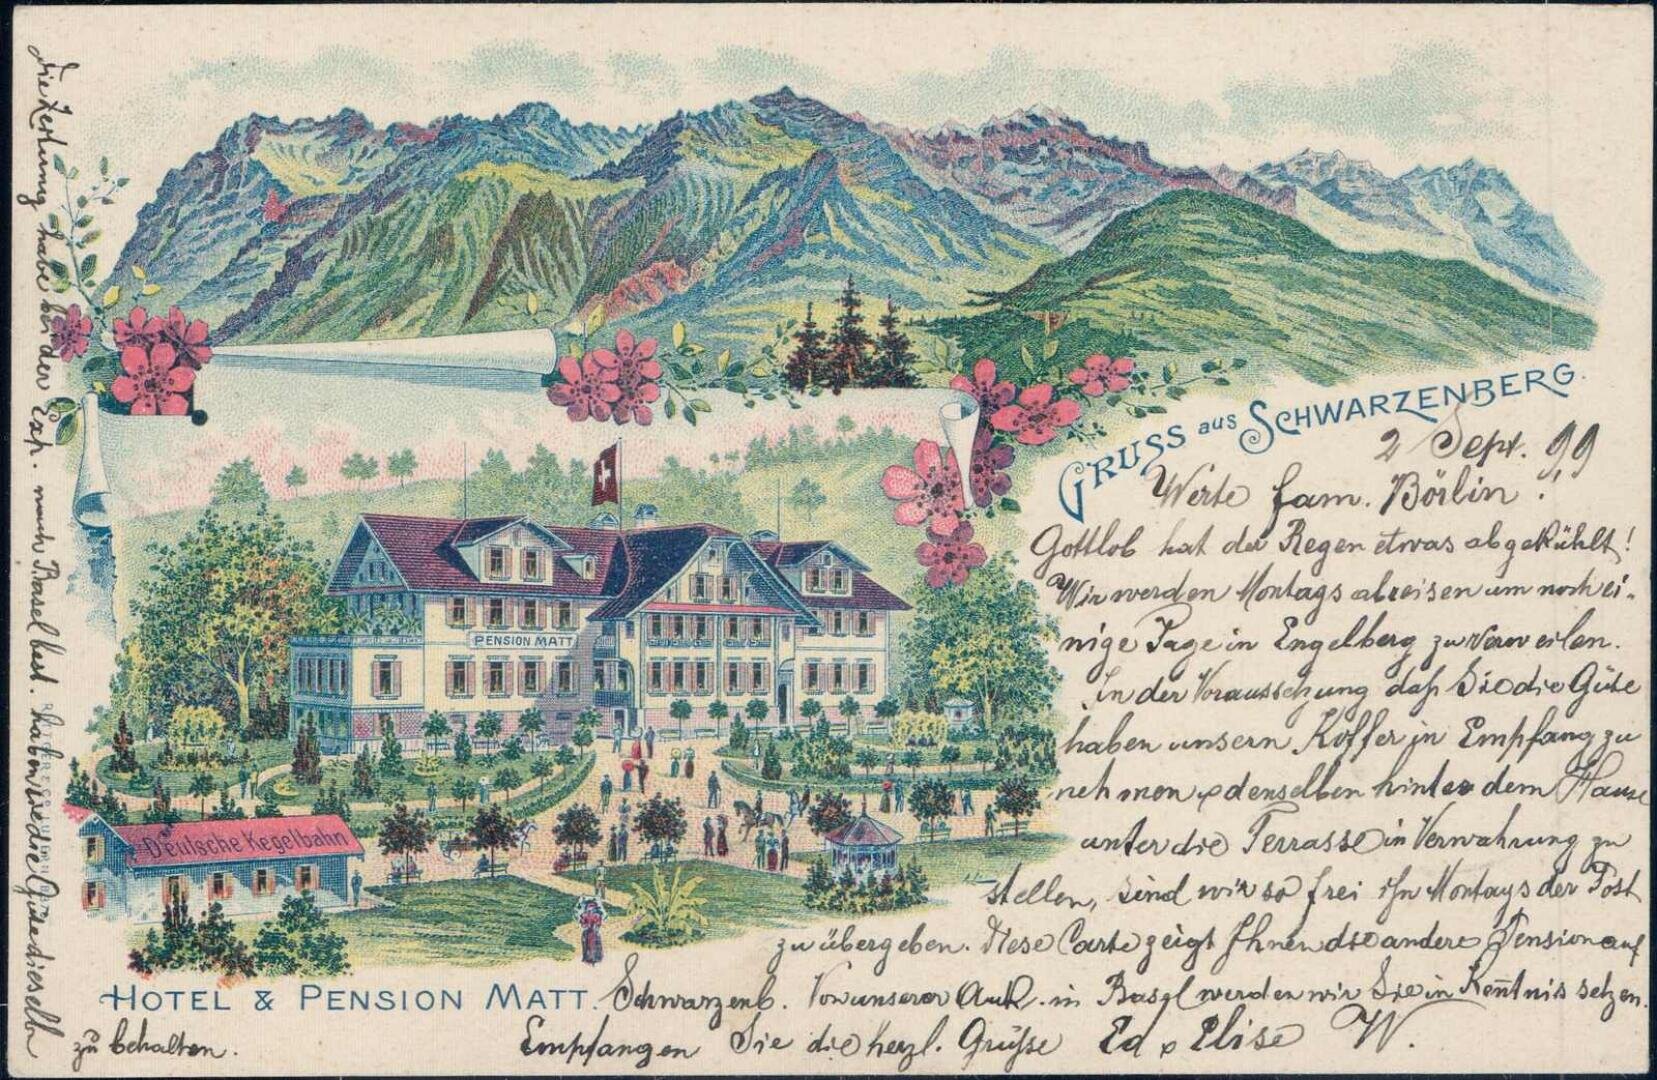 GRUSS aus SCHWARZENBERG.
2 Sept. 99
Werte Fam. Börlin!
Gottlob hat der Regen etwas abgekühlt!
Wir werden Montags abreisen um noch ei-
nige Tage in Engelberg zu verweilen.
In der Voraussetzung daß Sie die Güte
haben unsern Koffer in Empfang zu
nehmen & denselben hinter dem Hause
unter die Terrasse in Verwahrung zu
stellen, sind wir so frei ihn Montags der Post
zu übergeben. Diese Carte zeigt Ihnen die andere Pension auf
Schwarzenb. Von unserer Ank. in Basel werden wir Sie in Kenntnis setzen.
Empfangen Sie die herzl. Grüsse Ed & Elise W.
PENSION MATT
Deutsche Kegelbahn
HOTEL & PENSION MATT.
die Zeitung habe bei der Exp. nach Basel best. haben Sie die Güte dieselbe
zu behalten.